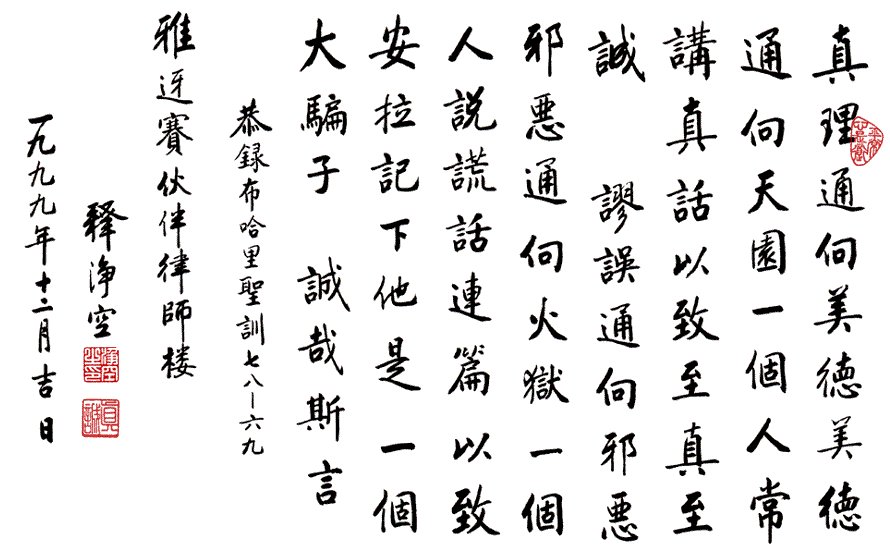 真理通向美德美德
通向天園一個人常
講真話以致至真至
誠　謬誤通向邪惡
邪惡通向火獄一個
人説謊話連篇以致
安拉記下他是一個
大騙子　誠哉斯言
恭録布哈里聖訓七八—六九
雅迓賽伙伴律師楼
釋淨空
一九九九年十二月吉日